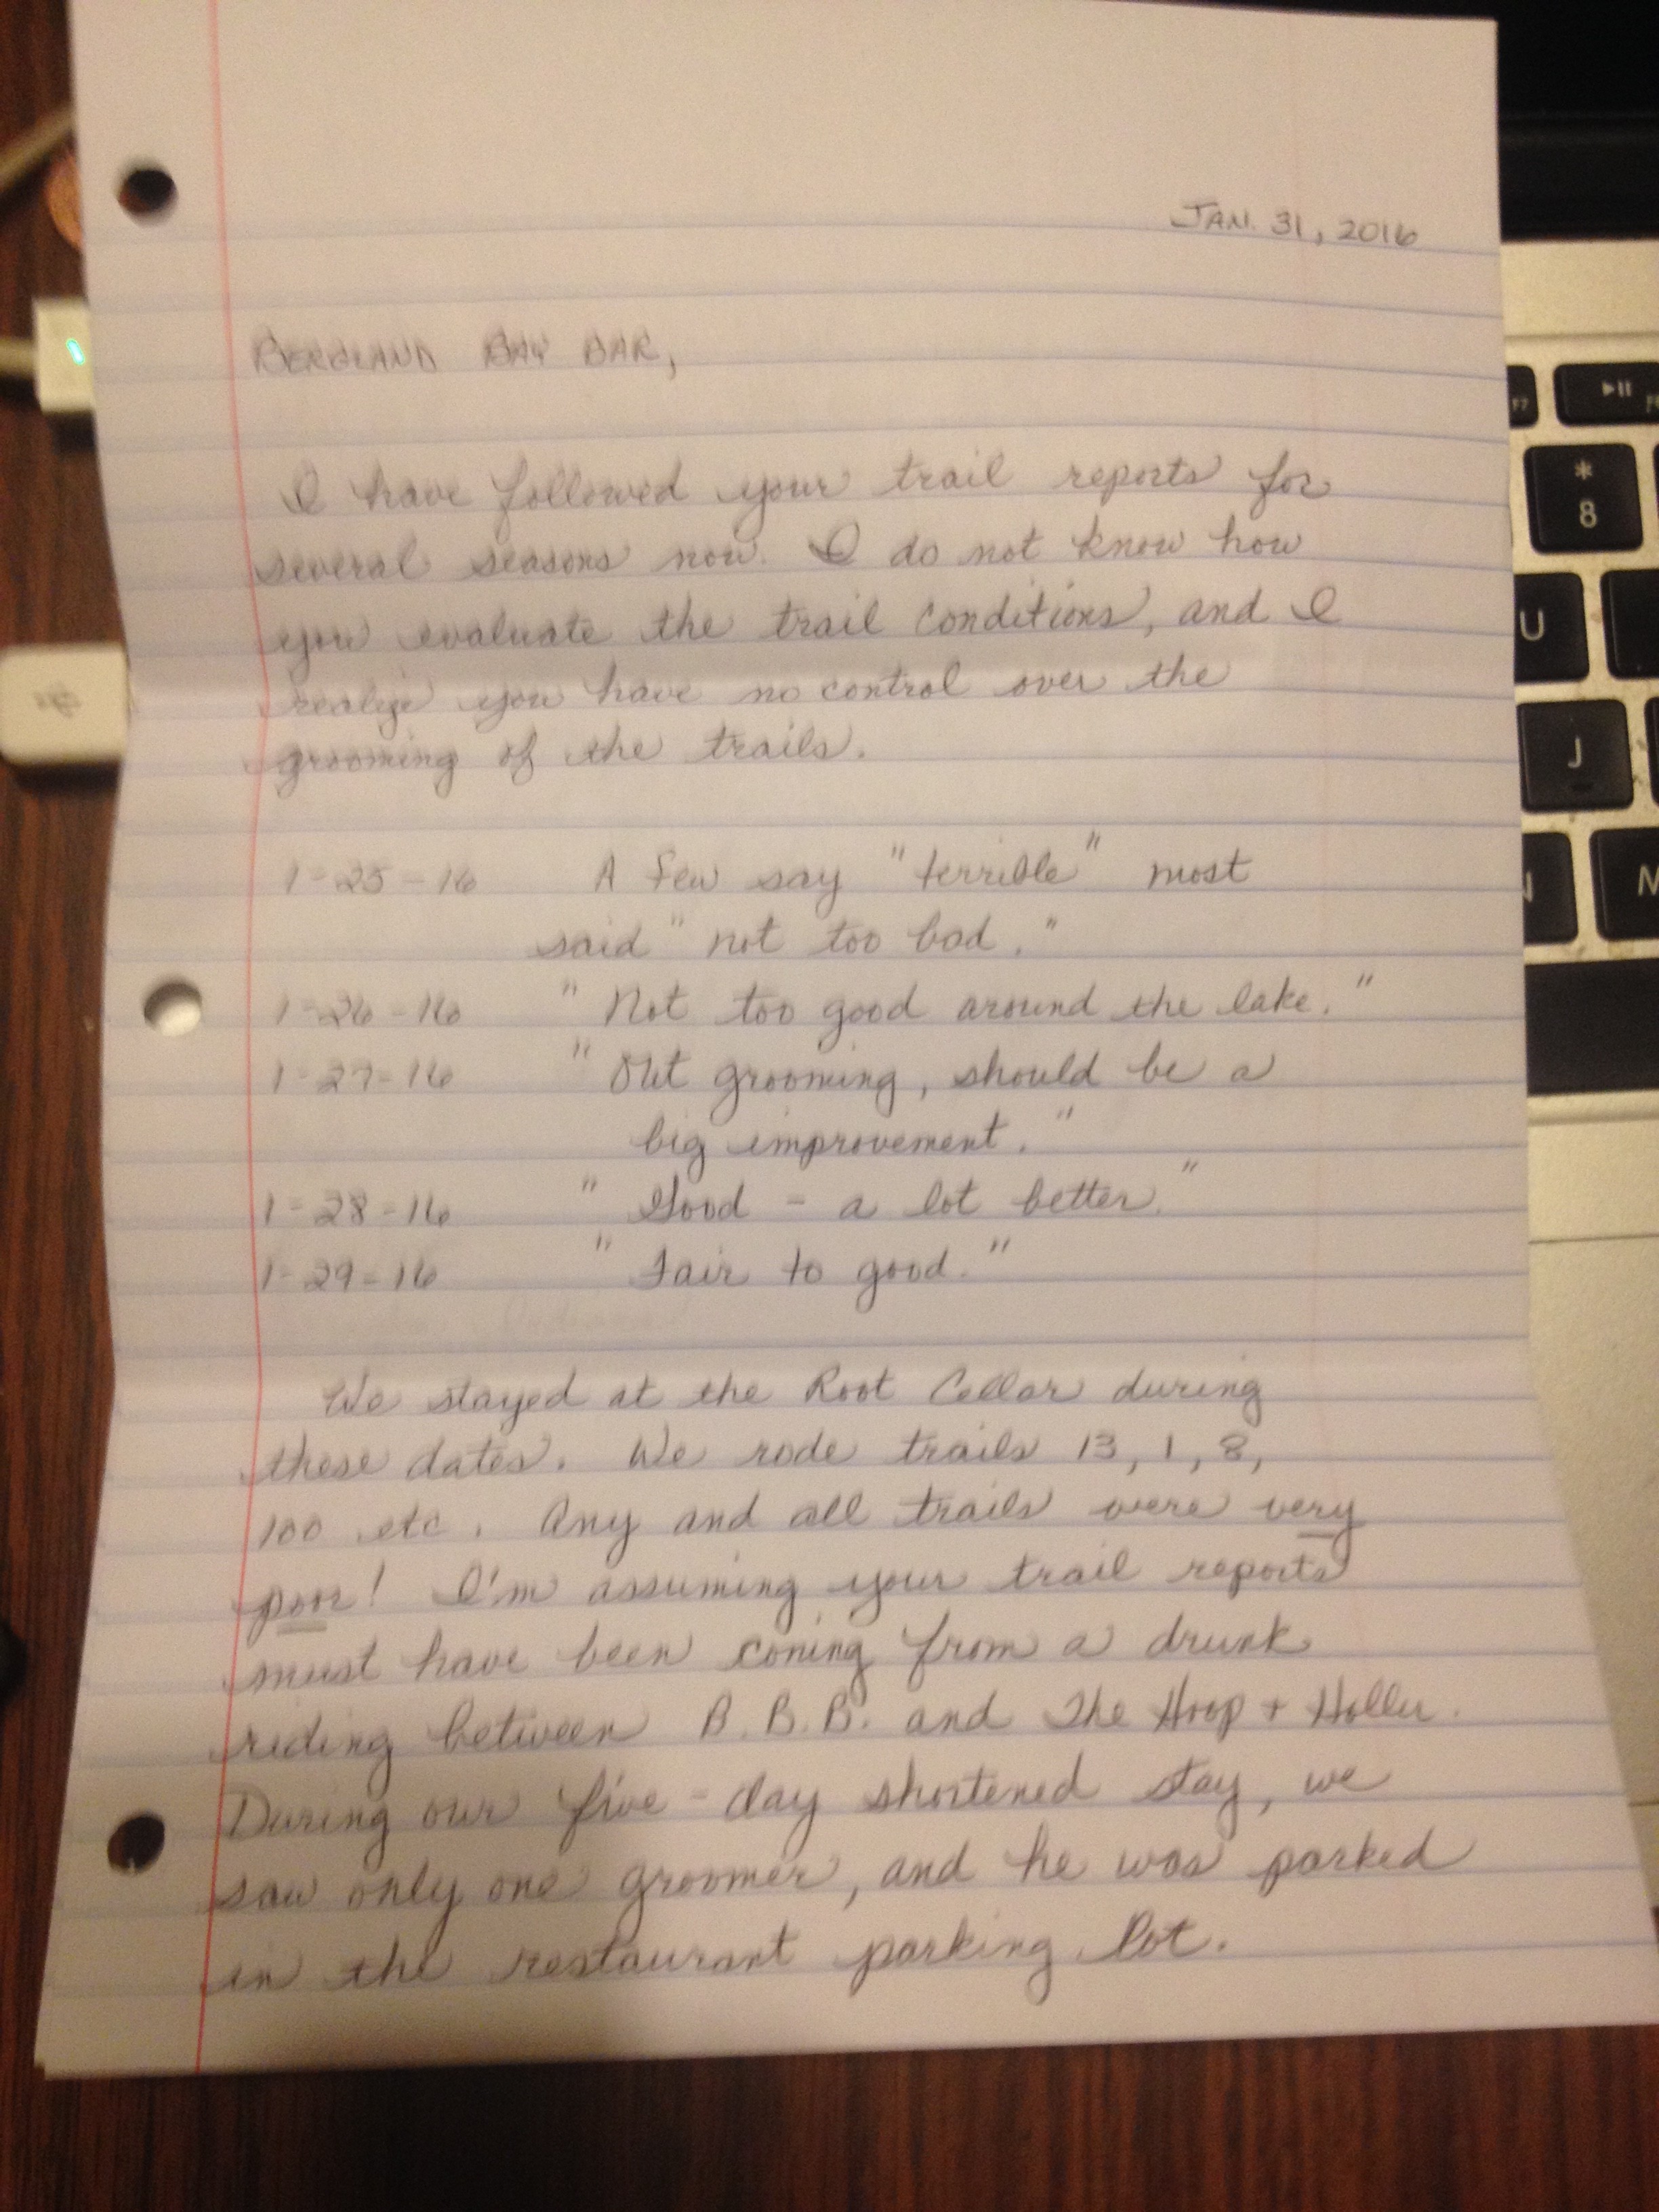 JAN. 31, 2016
BERGLAND BAY BAR,
I have followed your trail reports for
several seasons now. I do not know how
you evaluate the trail conditions, and I
realize you have no control over the
grooming of the trails.
1-25-16 A few say "terrible" most
said "not too bad."
1-26-16 "Not too good around the lake."
1-27-16 "Out grooming, should be a
big improvement."
1-28-16 "Good - a lot better."
1-29-16 "Fair to good."
We stayed at the Root Cellar during
these dates. We rode trails 13, 1, 8,
100 etc. Any and all trails were very
poor! I'm assuming your trail reports
must have been coming from a drunk
riding between B.B.B. and The Hoop + Holler.
During our five-day shortened stay, we
saw only one groomer, and he was parked
in the restaurant parking lot.
F7
*
8
U
J
N
M